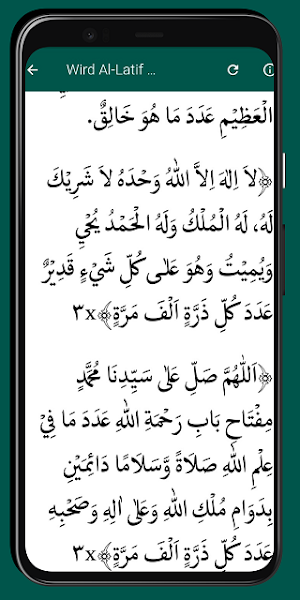 Wird Al-Latif ...
الْعَظِيْمِ عَدَدَ مَا هُوَ خَالِقٌ.
﴿لاَ اِلٰهَ اِلاَّ اللهُ وَحْدَهُ لاَ شَرِيْكَ
لَهُ، لَهُ الْمُلْكُ وَلَهُ الْحَمْدُ يُحْيِ
وَيُمِيْتُ وَهُوَ عَلٰى كُلِّ شَيْءٍ قَدِيْرٌ
عَدَدَ كُلِّ ذَرَّةٍ اَلْفَ مَرَّةٍ﴾ ٣x
﴿اَللّٰهُمَّ صَلِّ عَلٰى سَيِّدِنَا مُحَمَّدٍ
مِفْتَاحِ بَابِ رَحْمَةِ اللهِ عَدَدَ مَا فِيْ
عِلْمِ اللهِ صَلاَةً وَّسَلاَمًا دَائِمَيْنِ
بِدَوَامِ مُلْكِ اللهِ وَعَلٰى اٰلِهِ وَصَحْبِهِ
عَدَدَ كُلِّ ذَرَّةٍ اَلْفَ مَرَّةٍ﴾ ٣x